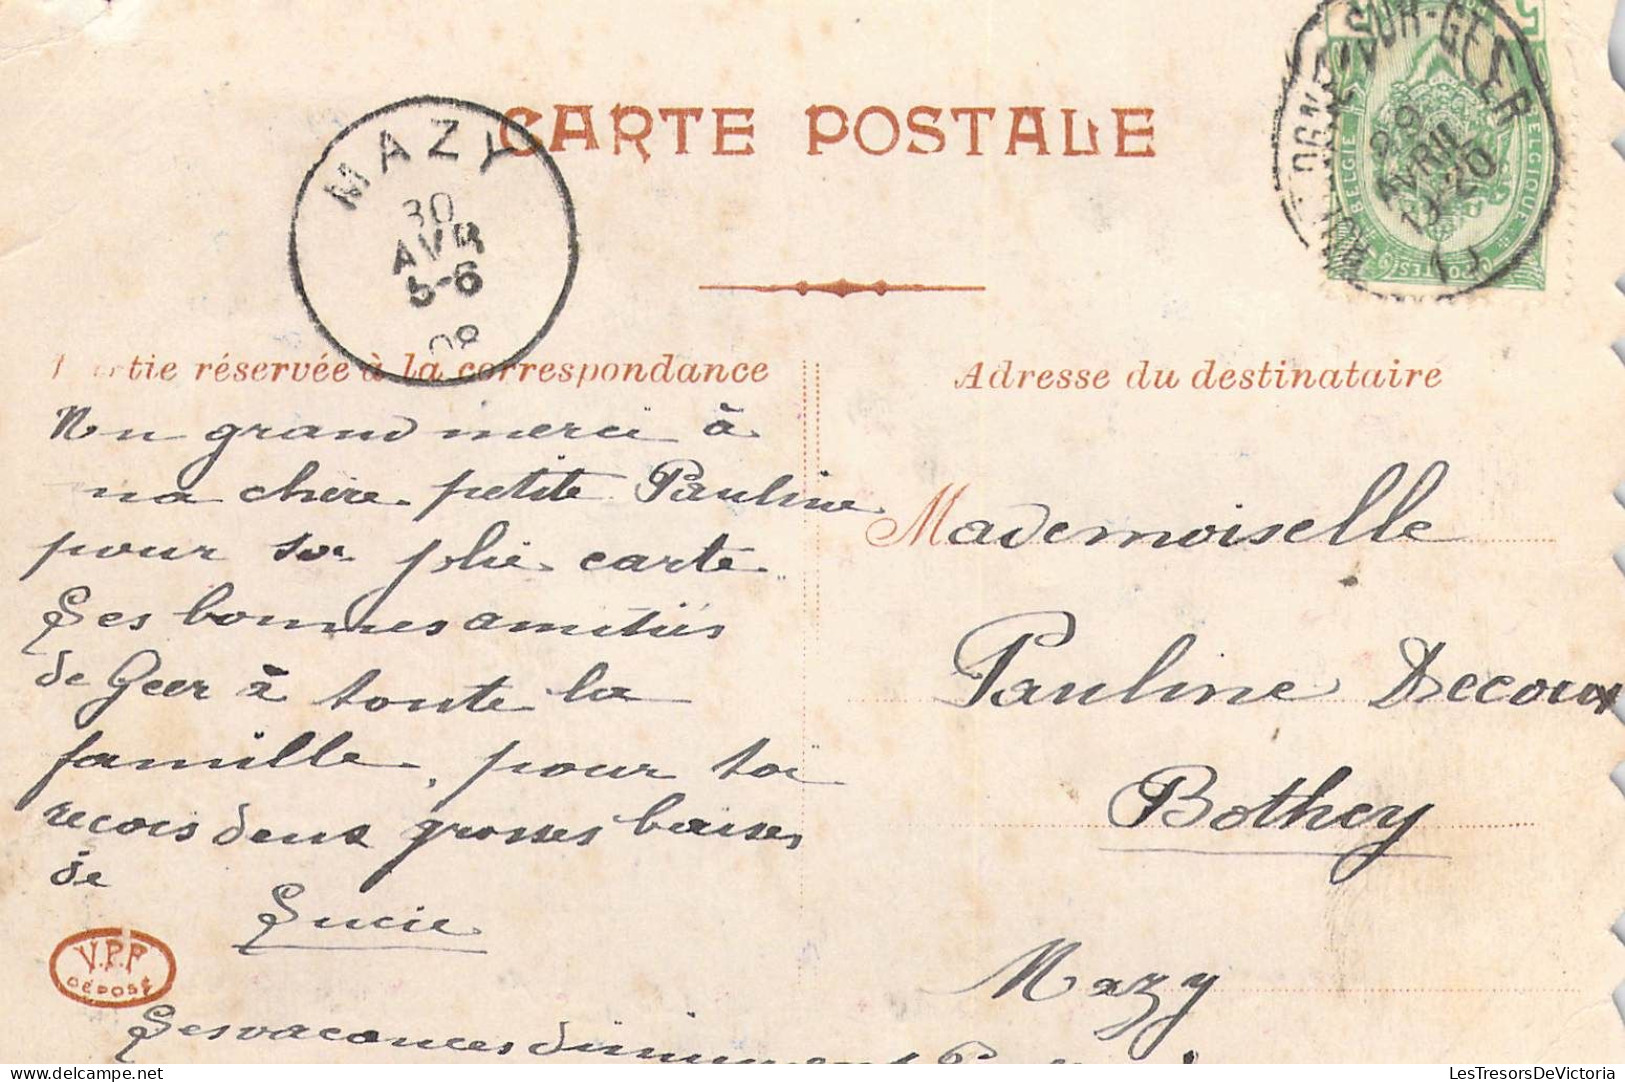 CARTE POSTALE
MAZY
30
AVR
5-6
08
SUR-GEER
29
AVRIL
BELGIE
BELGIQUE
POSTES
5
rtie réservée à la correspondance
Adresse du destinataire
Un grand merci à
ma chère petite Pauline
pour sa jolie carte
Les bonnes amitiés
de Geer à toute la
famille, pour toi
reçois deux grosses baises
de
Lucie
V.P.F
DÉPOSÉ
Les vacances diminuent
Mademoiselle
Pauline Decoux
Bothey
Mazy
LesTresorsDeVictoria
delcampe.net